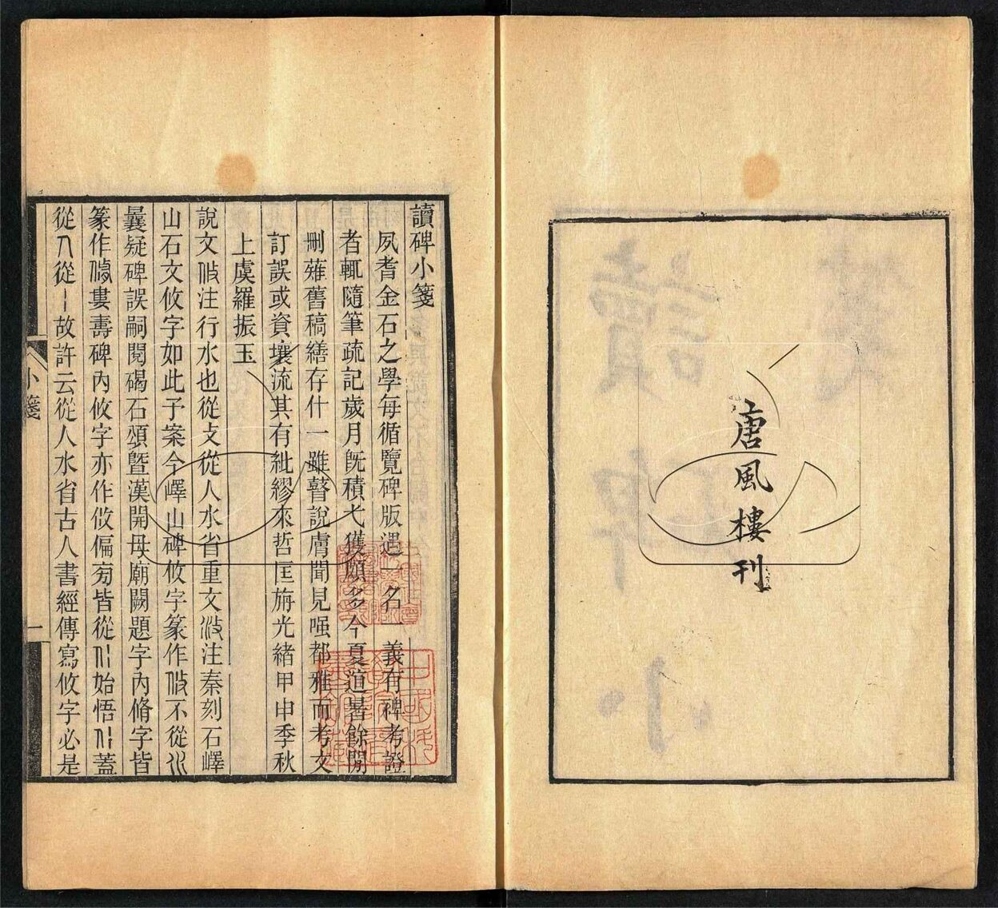 唐風樓刊
讀碑小箋
夙耆金石之學每循覽碑版遇一名一義有裨考證
者輒隨筆疏記歲月旣積弋獲頗多今夏逭暑餘閒
刪薙舊稿繕存什一雖瞽說膚聞見嗤都雅而考文
訂誤或資壤流其有紕繆來哲匡旃光緒甲申季秋
上虞羅振玉
說文攸注行水也從攴從人水省重文汥注秦刻石嶧
山石文攸字如此予案今嶧山碑攸字篆作攸不從
曩疑碑誤嗣閱碣石頌曁漢開母廟闕題字內脩字皆
篆作婁壽碑內攸字亦作攸偏旁皆從始悟蓋
從人從丨故許云從人水省古人書經傳寫攸字必是
小箋
一